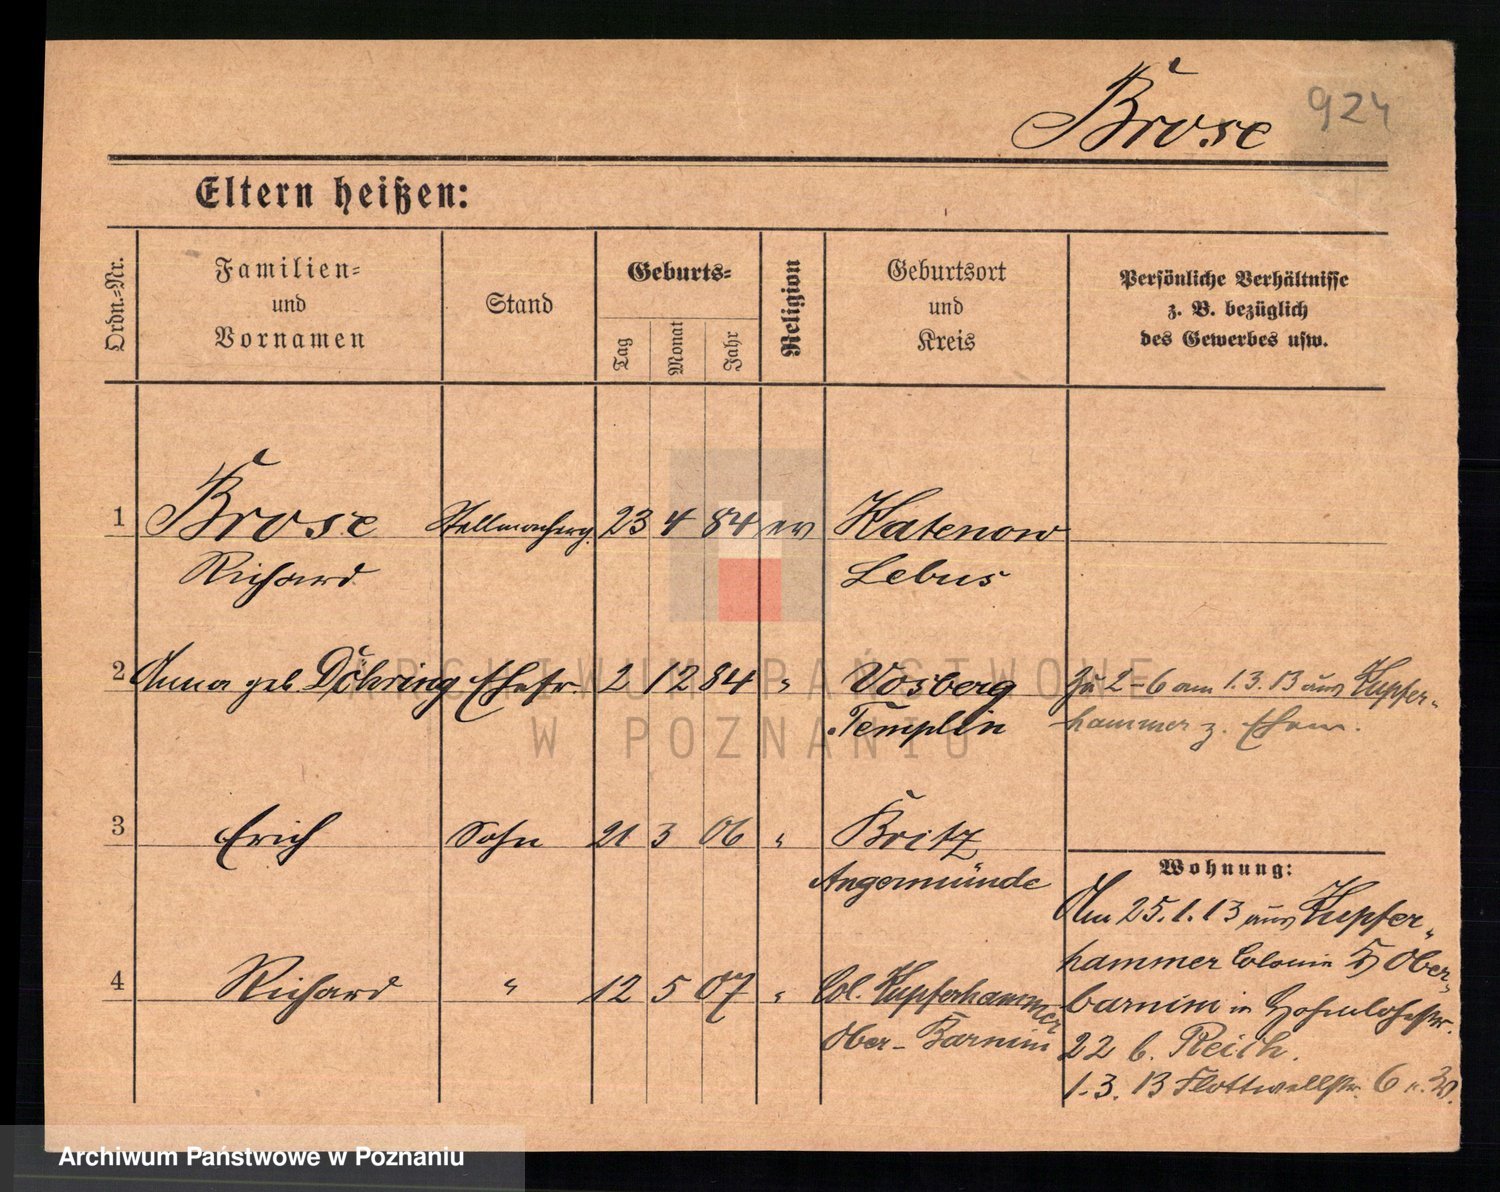 Brose 924
Eltern heißen:
Ordn.-Nr.
Familien-
und
Vornamen
Stand
Geburts-
Tag
Monat
Jahr
Religion
Geburtsort
und
Kreis
Persönliche Verhältnisse
z. B. bezüglich
des Gewerbes usw.
1 Brose Stellmacherg. 23 4 84 ev Katenow
Richard Lebus
2 Anna geb Döhring Ehefr. 2 12 84 " Vosberg Zu 2-6 am 1.3.13 aus Kupfer-
Templin hammer z. Ehem.
3 Erich Sohn 21 3 06 " Britz
Angermünde
Wohnung:
Am 25.1.13 aus Kupfer-
hammer Colonie Ober-
4 Richard " 12 5 07 " Col. Kupferhammer
Ober-Barnim
barnim in Hohenlohestr.
22 b. Reich.
1.3.13 Flottwellstr. 6
ARCHIWUM PAŃSTWOWE
W POZNANIU
Archiwum Państwowe w Poznaniu